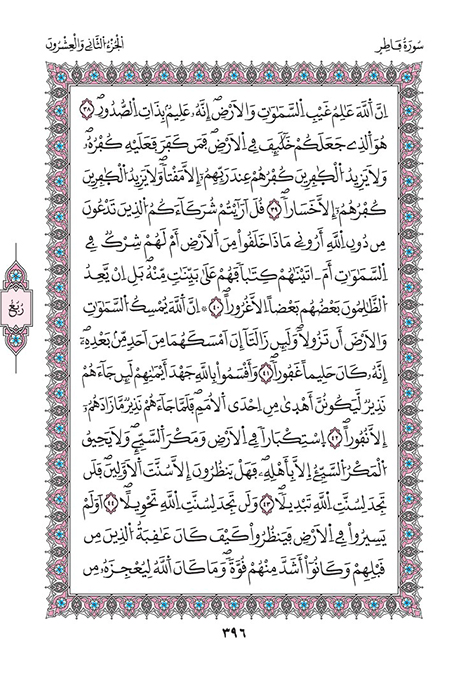 سُورَةُ فَاطِرٍ
اَلْجُزْءُ الثَّانِي وَالْعِشْرُونَ
اِنَّ اَللَّهَ عَٰلِمُ غَيْبِ اِلسَّمَٰوَٰتِ وَالَارْضِ إِنَّهُۥ عَلِيمُۢ بِذَاتِ اِلصُّدُورِ ٣٨
هُوَ اَلذِے جَعَلَكُمْ خَلَٰٓئِفَ فِے اِلَارْضِ فَمَن كَفَرَ فَعَلَيْهِ كُفْرُهُۥ
وَلَا يَزِيدُ اُلْكٰ۪فِرِينَ كُفْرُهُمْ عِندَ رَبِّهِمُۥٓ إِلَّا مَقْتاٗ وَلَا يَزِيدُ اُلْكٰ۪فِرِينَ
كُفْرُهُمُۥٓ إِلَّا خَسَاراٗ ٣٩ قُلَ اَرَٰٓيْتُمْ شُرَكَآءَكُمُ اُلذِينَ تَدْعُونَ
مِن دُونِ اِللَّهِ أَرُونِے مَاذَا خَلَقُواْ مِنَ اَلَارْضِ أَمْ لَهُمْ شِرْكٞ فِے
اِلسَّمَٰوَٰتِ أَمَ اٰتَيْنَٰهُمْ كِتَٰباٗ فَهُمْ عَلَىٰ بَيِّنَٰتٖ مِّنْهُ بَلِ اِنْ يَّعِدُ
اُلظَّٰلِمُونَ بَعْضُهُم بَعْضاً اِلَّا غُرُوراً ٤٠ ۞ اِنَّ اَللَّهَ يُمْسِكُ اُلسَّمَٰوَٰتِ
وَالَارْضَ أَن تَزُولَا وَلَئِن زَالَتَآ إِنَ اَمْسَكَهُمَا مِنَ اَحَدٖ مِّنۢ بَعْدِهِۦٓ
إِنَّهُۥ كَانَ حَلِيماً غَفُوراٗ ٤١ وَأَقْسَمُواْ بِاللَّهِ جَهْدَ أَيْمَٰنِهِمْ لَئِن جَآءَهُمْ
نَذِيرٞ لَّيَكُونُنَّ أَهْدَىٰ مِنِ اِحْدَى اَلُامَمِ فَلَمَّا جَآءَهُمْ نَذِيرٞ مَّا زَادَهُمُۥٓ
إِلَّا نُفُوراً ٤٢ اِسْتِكْبَاراٗ فِے اِلَارْضِ وَمَكْرَ اَلسَّيِّےِٕ وَلَا يَحِيقُ
اُلْمَكْرُ اُلسَّيِّئُ إِلَّا بِأَهْلِهِۦ فَهَلْ يَنظُرُونَ إِلَّا سُنَّتَ اَلَاوَّلِينَ فَلَن
تَجِدَ لِسُنَّتِ اِللَّهِ تَبْدِيلاٗ ٤٣ وَلَن تَجِدَ لِسُنَّتِ اِللَّهِ تَحْوِيلاً ٤٤ اَوَلَمْ
يَسِيرُواْ فِے اِلَارْضِ فَيَنظُرُواْ كَيْفَ كَانَ عَٰقِبَةُ اُلذِينَ مِن
قَبْلِهِمْ وَكَانُوٓاْ أَشَدَّ مِنْهُمْ قُوَّةٗ وَمَا كَانَ اَللَّهُ لِيُعْجِزَهُۥ مِن
رُبُعْ
٣٩٦